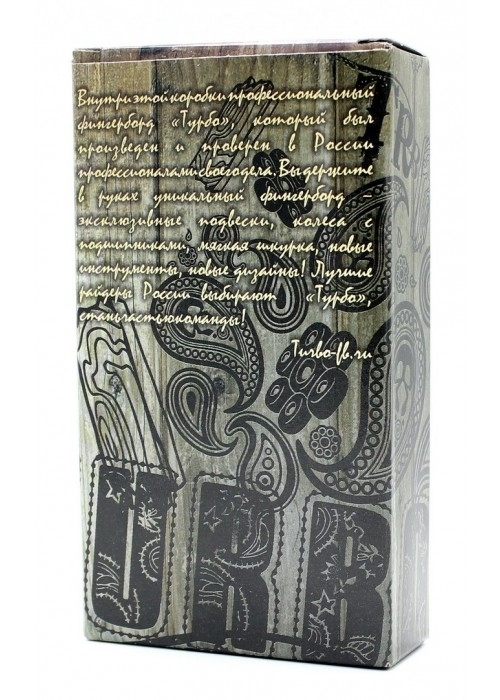 Внутри этой коробки профессиональный
фингерборд «Турбо», который был
произведен и проверен в России
профессионалами своего дела. Вы держите
в руках уникальный фингерборд –
эксклюзивные подвески, колеса с
подшипниками, мягкая шкурка, новые
инструменты, новые дизайны! Лучшие
райдеры России выбирают «Турбо»,
стань частью команды!
Turbo-fb.ru
URB